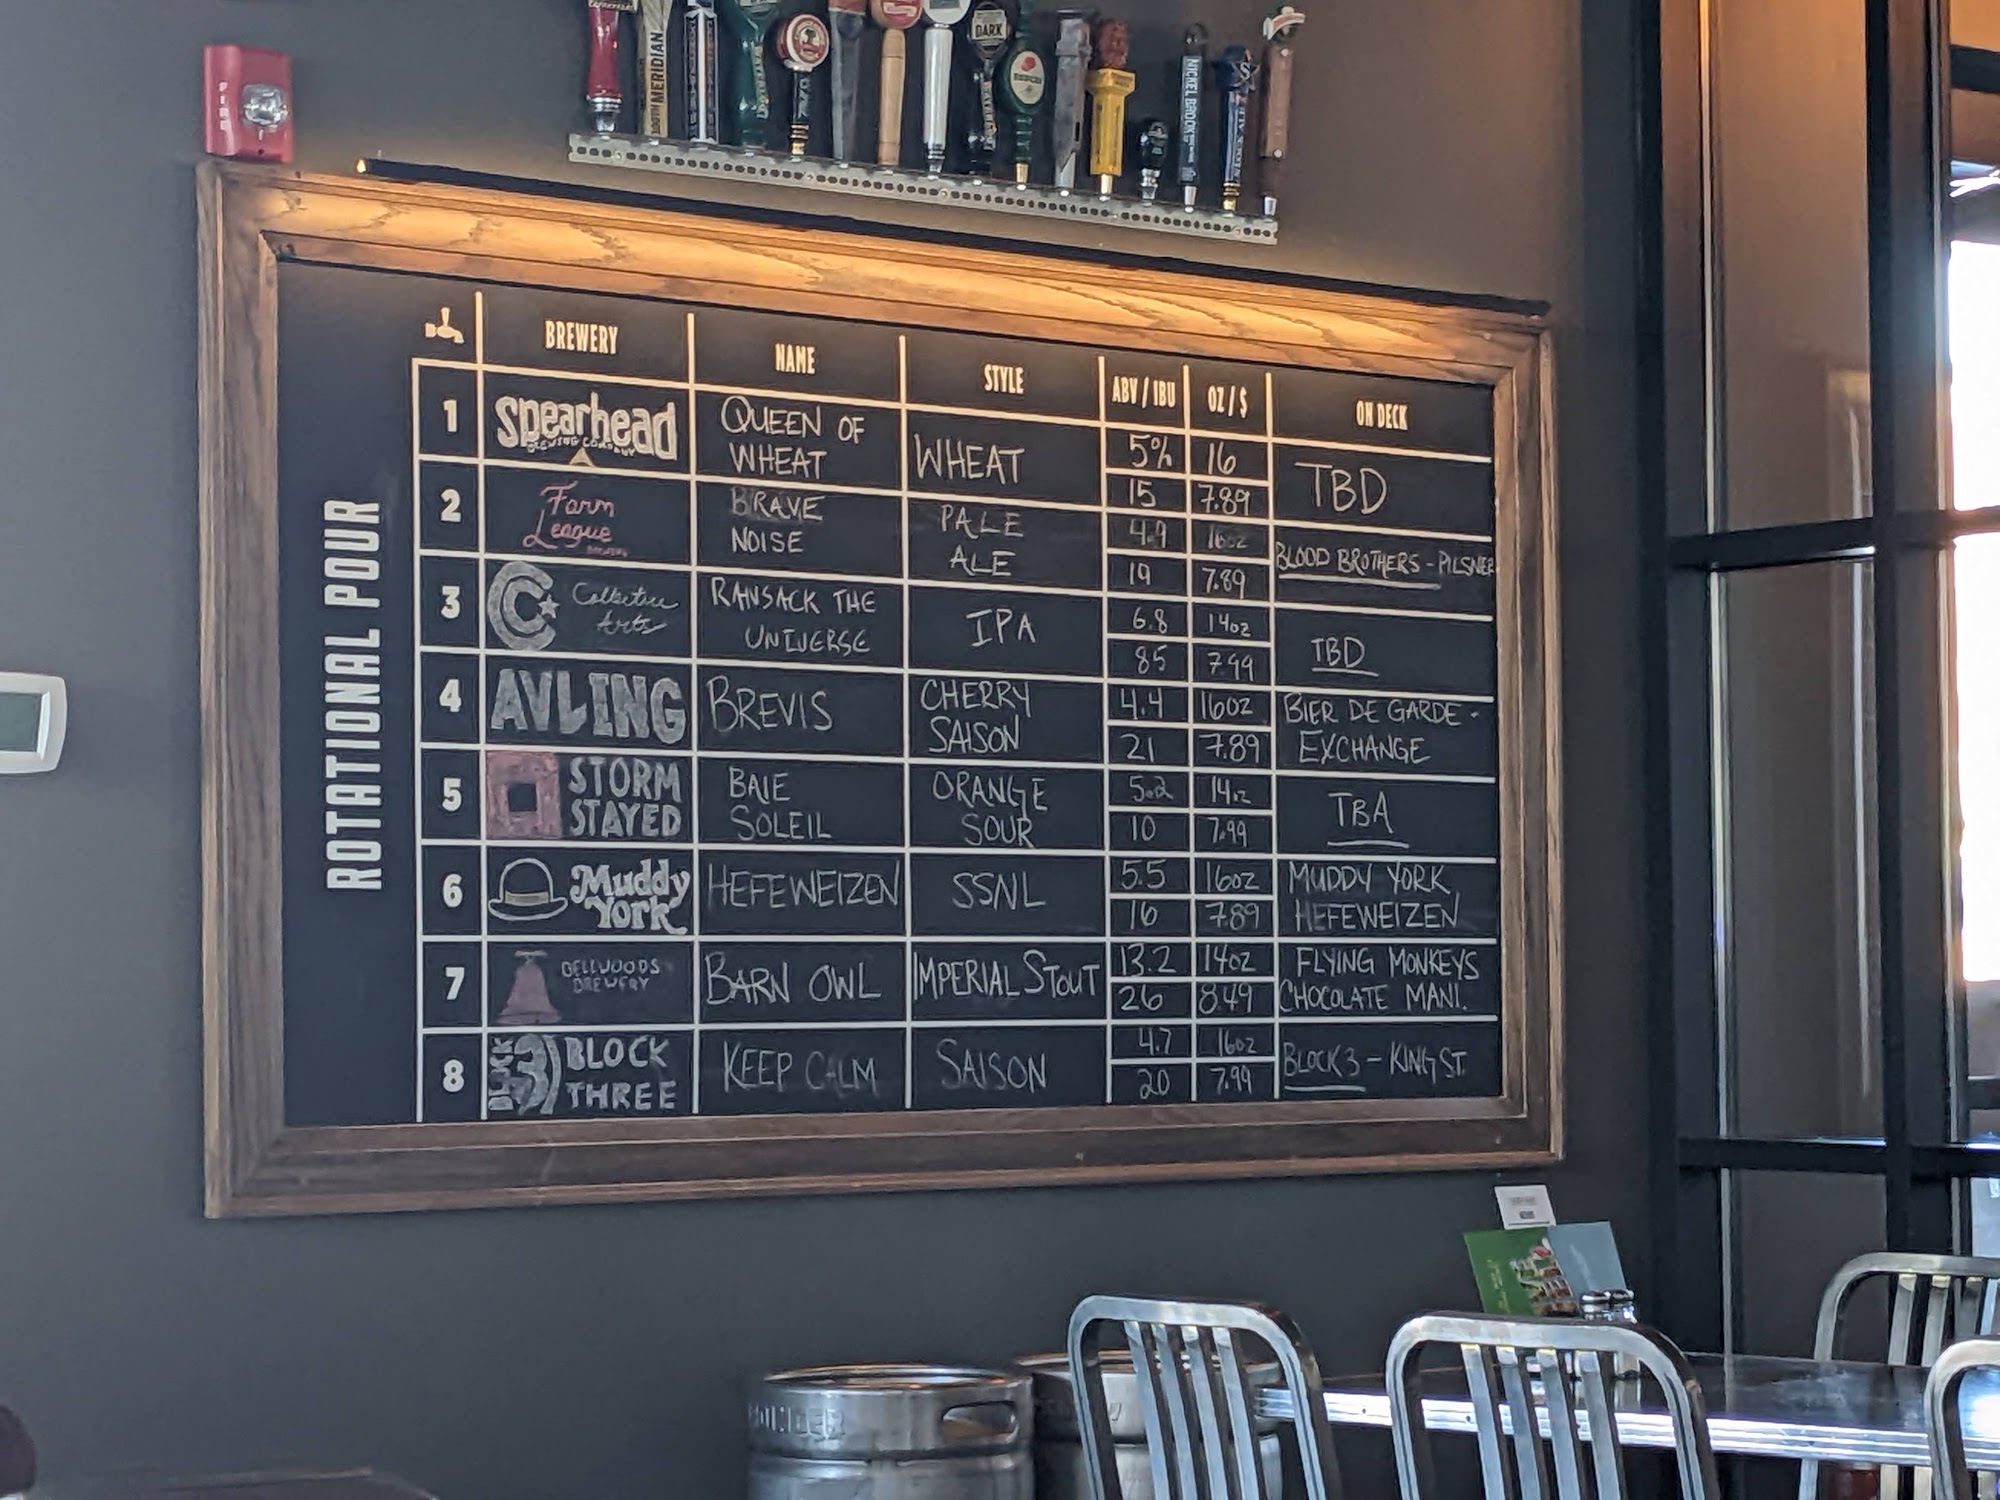 FIRE
MERIDIAN
DARK
NICKEL BROOK
ROTATIONAL POUR
BREWERY NAME STYLE ABV / IBU OZ / $ ON DECK
1
Spearhead
BREWING COMPANY
QUEEN OF
WHEAT
WHEAT
5% 16
15 7.89
TBD
2
Farm
League
BREWING
BRAVE
NOISE
PALE
ALE
4.9 16oz
19 7.89
BLOOD BROTHERS - PILSNER
3
C
Collective
Arts
RANSACK THE
UNIVERSE
IPA
6.8 14oz
85 7.99
TBD
4
AVLING
BREVIS
CHERRY
SAISON
4.4 16oz
21 7.89
BIER DE GARDE -
EXCHANGE
5
STORM
STAYED
BAIE
SOLEIL
ORANGE
SOUR
5.2 14oz
10 7.99
TBA
6
Muddy
York
HEFEWEIZEN
SSNL
5.5 16oz
16 7.89
MUDDY YORK
HEFEWEIZEN
7
BELLWOODS
BREWERY
BARN OWL
IMPERIAL STOUT
13.2 14oz
26 8.49
FLYING MONKEYS
CHOCOLATE MANI.
8
BLOCK
3
BLOCK
THREE
KEEP CALM
SAISON
4.7 16oz
20 7.99
BLOCK 3 - KING ST.